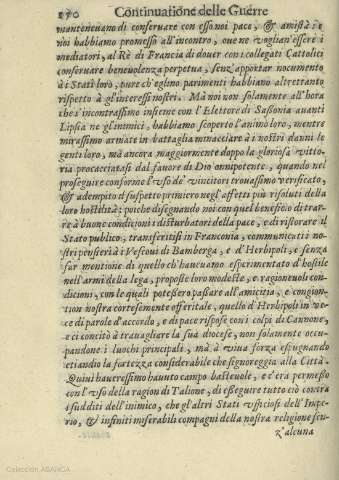 170 Continuatione delle Guerre
manteneuano di conseruare con esso noi pace, & amistà: e
noi habbiamo promesso all'incontro, oue ne voglian'essere i
mediatori, al Rè di Francia di douer con i collegati Cattolici
conseruare beneuolenza perpetua, senz'apportar nocumento
à i Stati loro, pure ch'eglino parimenti habbiano altrettanto
rispetto à gl'interessi nostri. Mà noi non solamente all'hora
che s'incontrassimo insieme con l'Elettore di Sassonia auanti
Lipsia ne gl'inimici, habbiamo scoperto l'animo loro, mentre
mirassimo armate in battaglia minacciare à i nostri danni le
genti loro, mà ancora maggiormente doppo la gloriosa vitto-
ria procacciatasi dal fauore di Dio onnipotente, quando nel
proseguire conforme l'vso de' vincitori trouassimo verificato,
& adempito il sospetto primiero negl'affetti più risoluti della
loro hostilità: poiche disegnando noi con quel beneficio di trar-
re à buone condicioni i disturbatori della pace, e di ristorare il
Stato publico, transferitisi in Franconia, communicati i no-
stri pensieri à i Vescoui di Bamberga, e d'Herbipoli, e senza
far mentione di quello ch'haueuamo esperimentato d'hostile
nell'armi della lega, proposte loro modeste, e ragioneuoli con-
dicioni, con le quali potessero passare all'amicitia, e congion-
tion nostra cortesemente offeritale, quello d'Herbipoli in ve-
ce di parole d'accordo, e di pace rispose con i colpi di Cannone,
e ci concitò à trauagliare la sua diocese, non solamente occu-
pandone i luochi principali, mà à viua forza espugnando
etiandio la fortezza considerabile che signoreggia alla Città.
Quiui haueressimo hauto campo basteuole, e c'era permesso
con l'vso della ragion di Talione, di esseguire tutto ciò contra
i sudditi dell'inimico, che gl'altri Stati vfficiosi dell'Impe-
rio, & infiniti miserabili compagni della nostra religione sen-
z'alcuna
Colección ABANCA